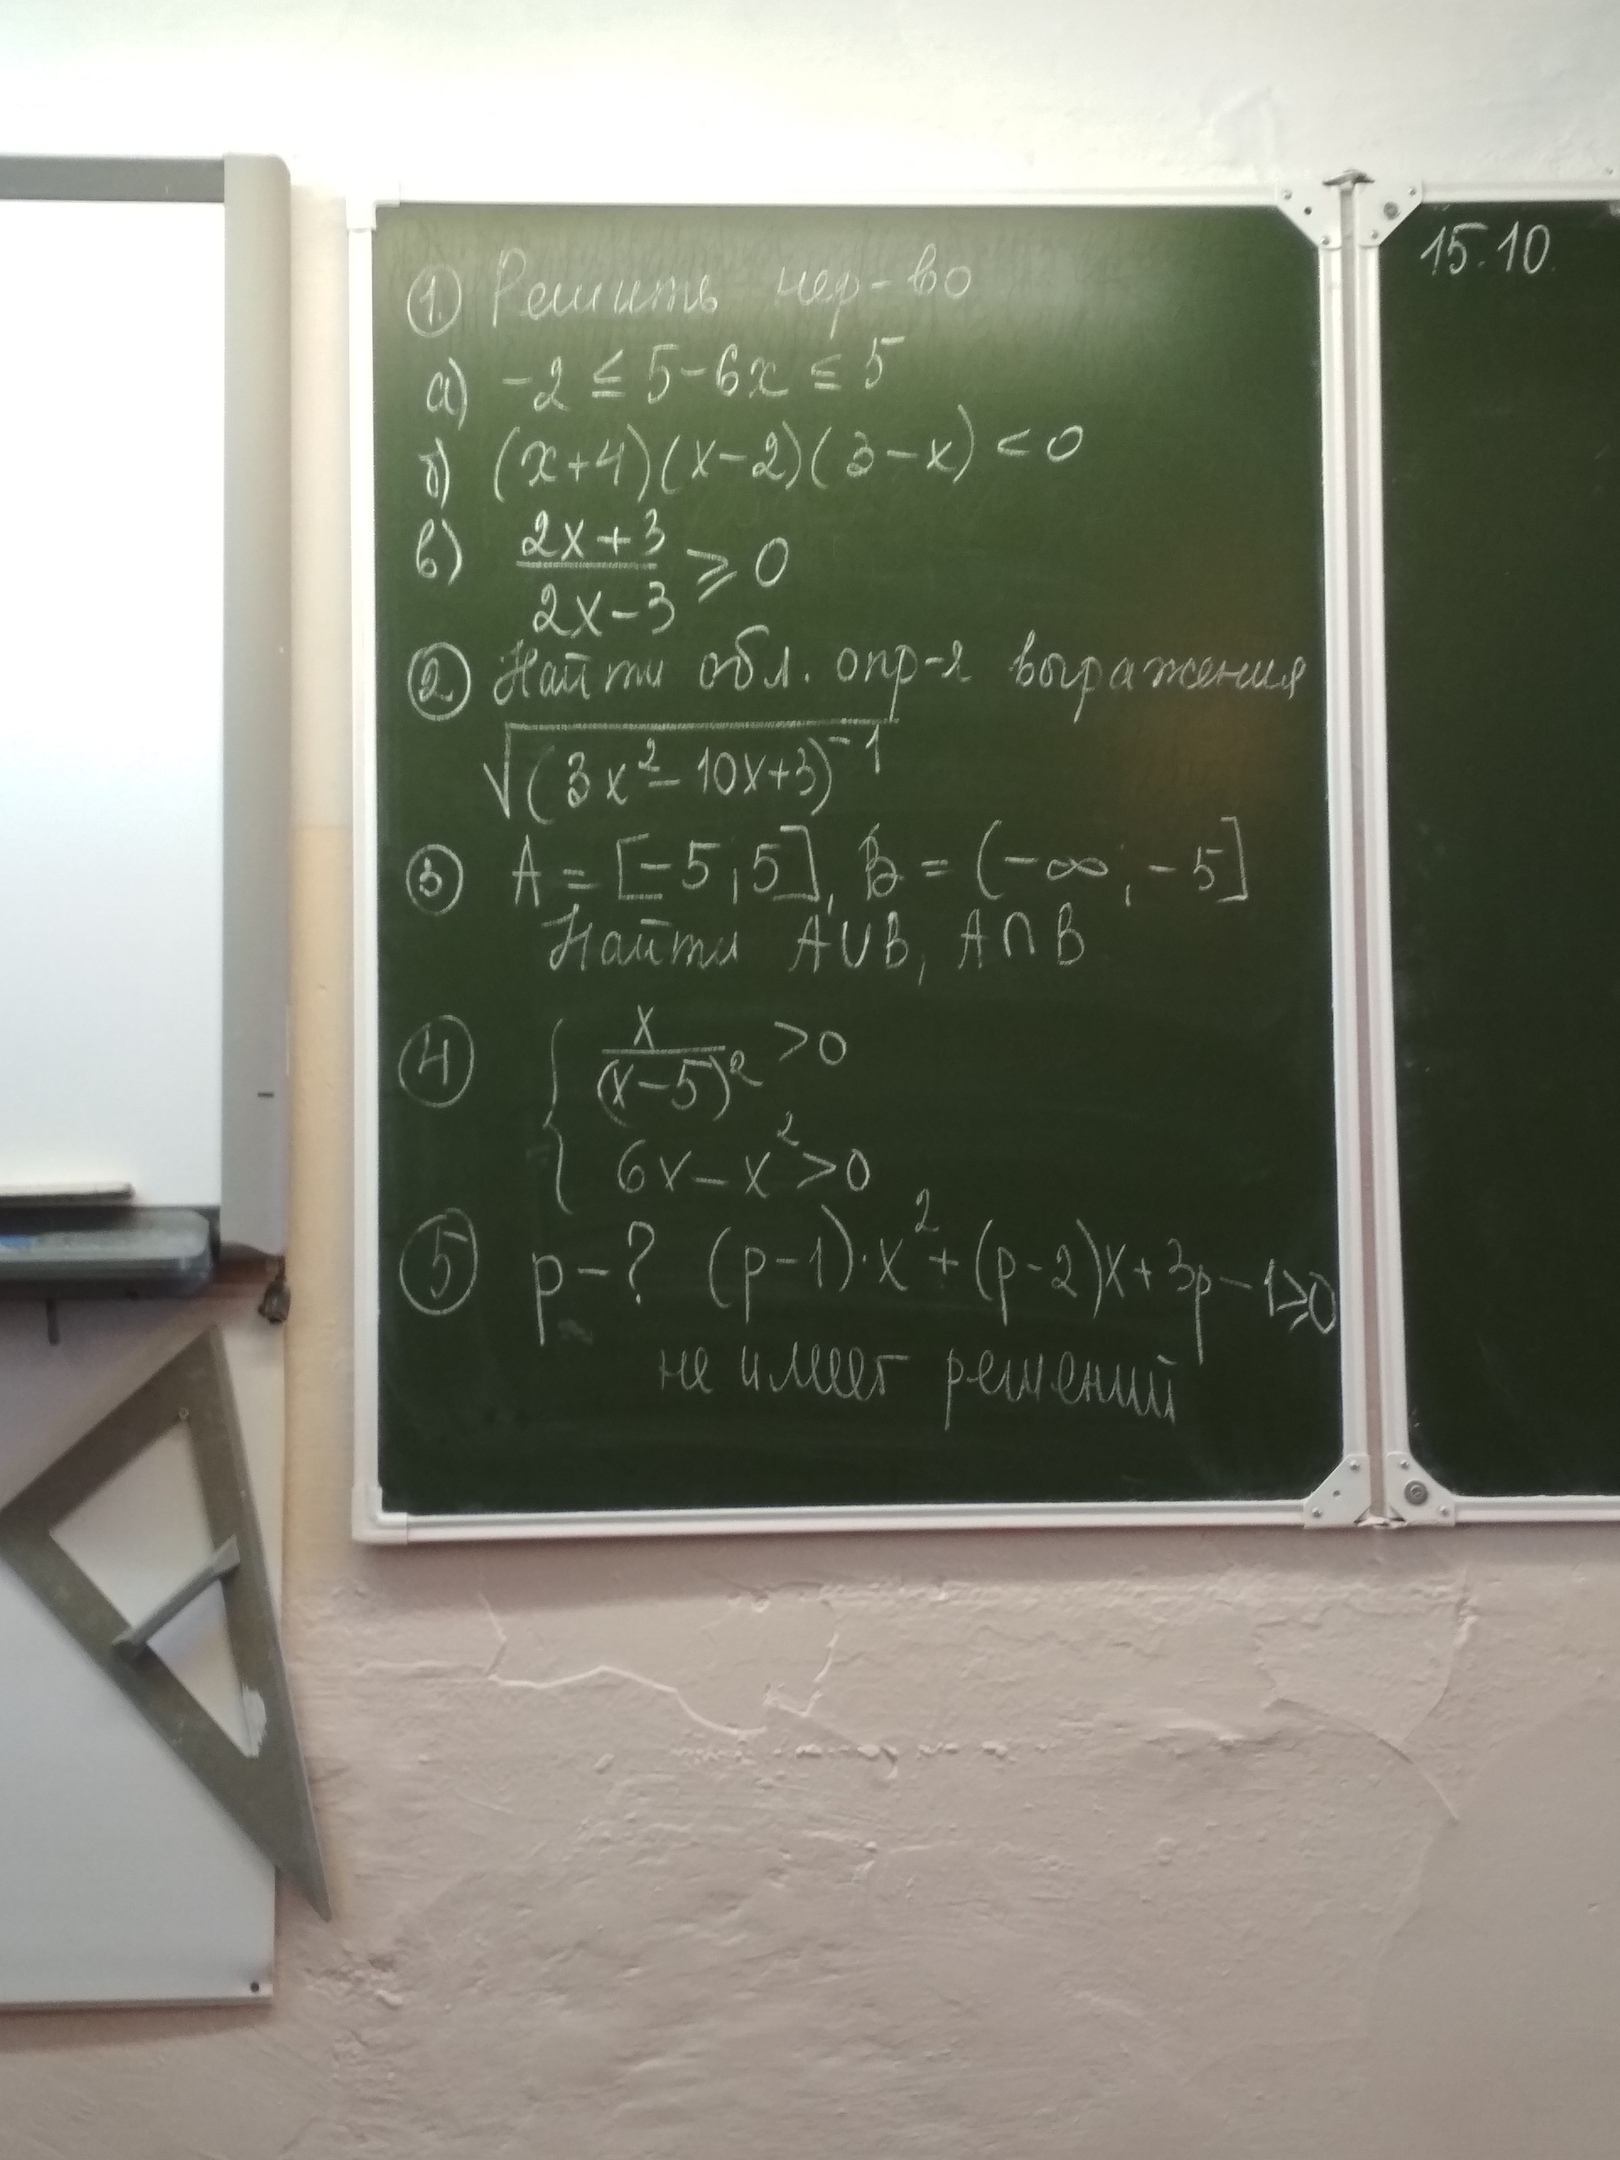 ① Решить нер-во
а) -2 ≤ 5-6x ≤ 5
б) (x+4)(x-2)(3-x) < 0
в) (2x+3)/(2x-3) ⩾ 0
② Найти обл. опр-я выражения
√((3x²-10x+3)⁻¹)
③ A = [-5;5], B = (-∞; -5]
Найти A∪B, A∩B
④ { x/(x-5)² >0
6x-x²>0
⑤ p-? (p-1)·x²+(p-2)x+3p-1⩾0
не имеет решений
15.10.